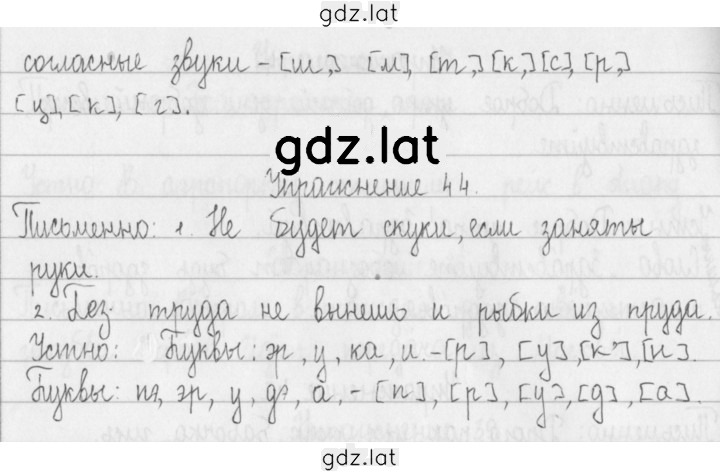 gdz.lat
согласные звуки - [ш], [м], [т], [к], [с], [р],
[ц], [к], [г].
gdz.lat
Упражнение 44.
Письменно: 1. Не будет скуки, если заняты
руки.
2. Без труда не вынешь и рыбки из пруда.
Устно: Буквы: эр, у, ка, и. - [р], [у], [к], [и].
Буквы: пэ, эр, у, дэ, а, - [п], [р], [у], [д], [а].
gdz.lat